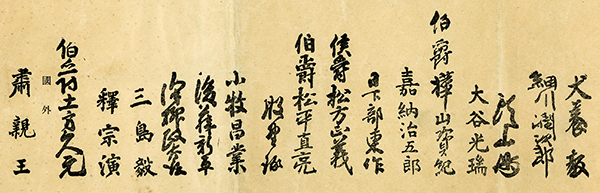 犬養毅
細川潤次郎
頭山満
大谷光瑞
伯爵樺山資紀
嘉納治五郎
日下部東作
侯爵松方正義
伯爵松平直亮
股野琢
小牧昌業
後藤新平
澤柳政太郎
三島毅
釋宗演
伯爵土方久元
國外
肅親王